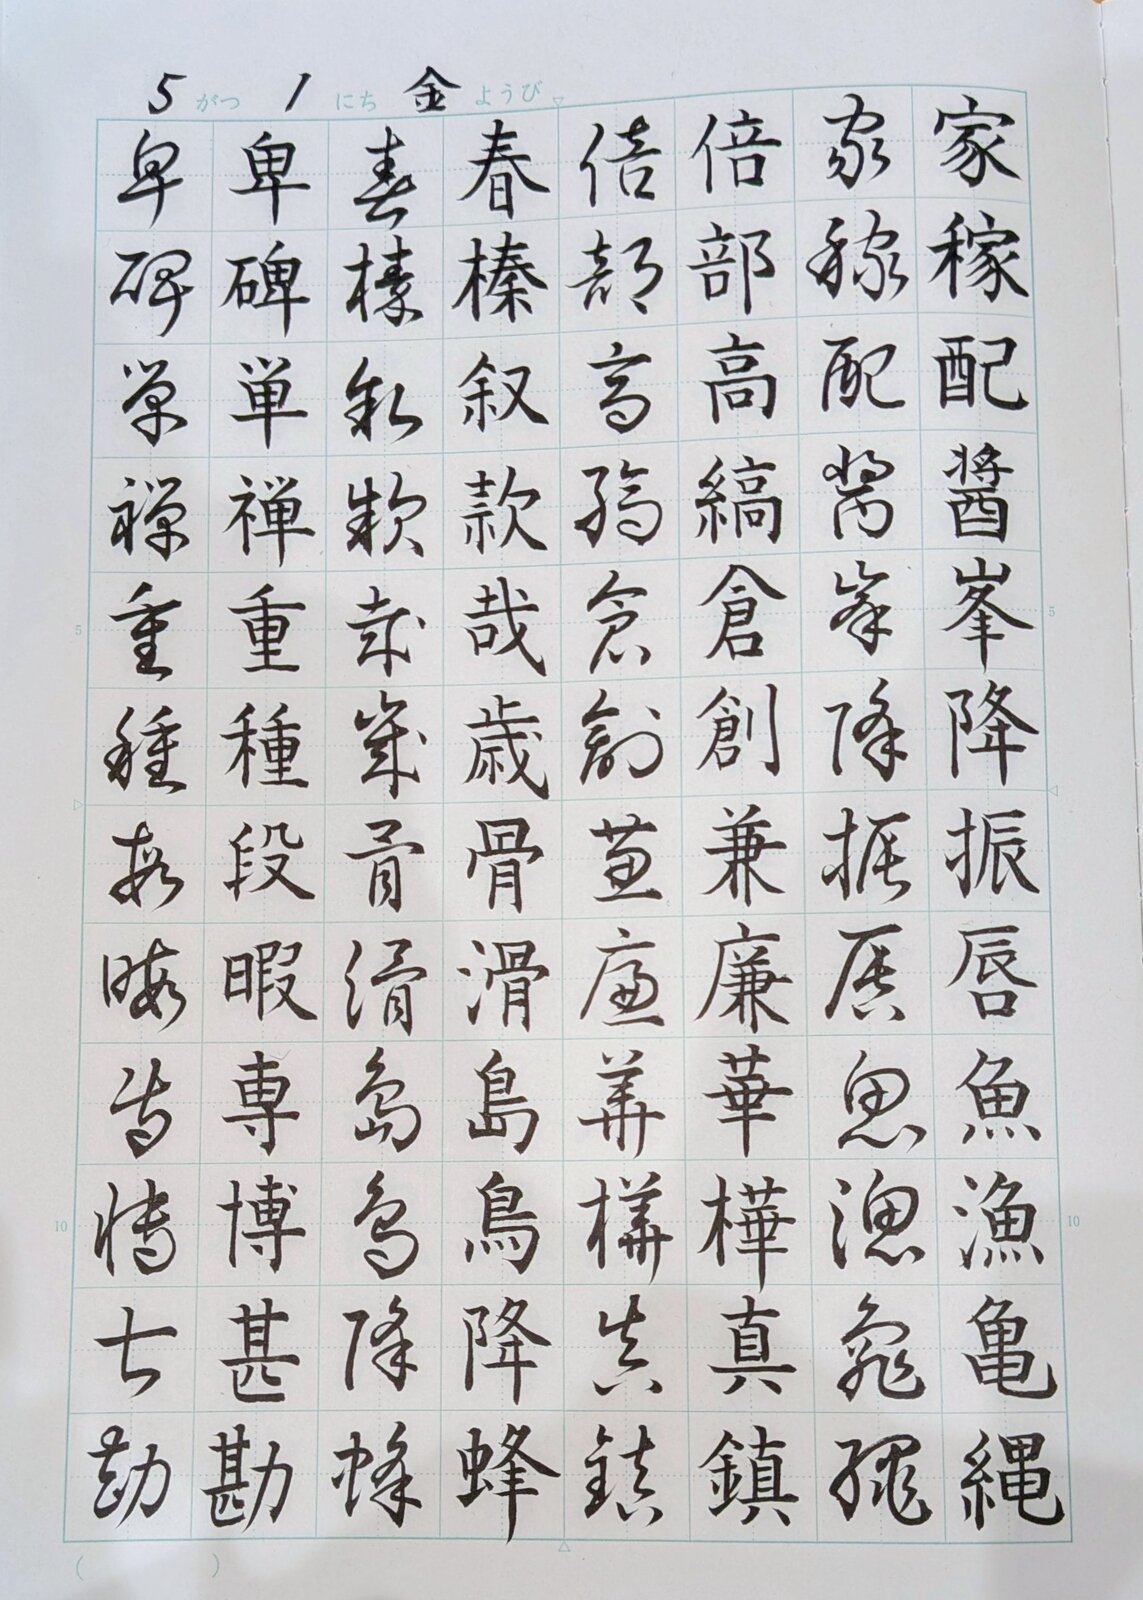 5がつ1にち金ようび
家稼配醤峯降振唇魚漁亀縄
家稼配醤峯降振唇魚漁亀縄
倍部高縞倉創兼廉華樺真鎮
倍部高縞倉創兼廉華樺真鎮
春榛叙款哉歳骨滑島鳥降蜂
春榛叙款哉歳骨滑島鳥降蜂
卑碑単禅重種段暇専博甚勘
卑碑単禅重種段暇専博甚勘
5
10
5
10
(　)